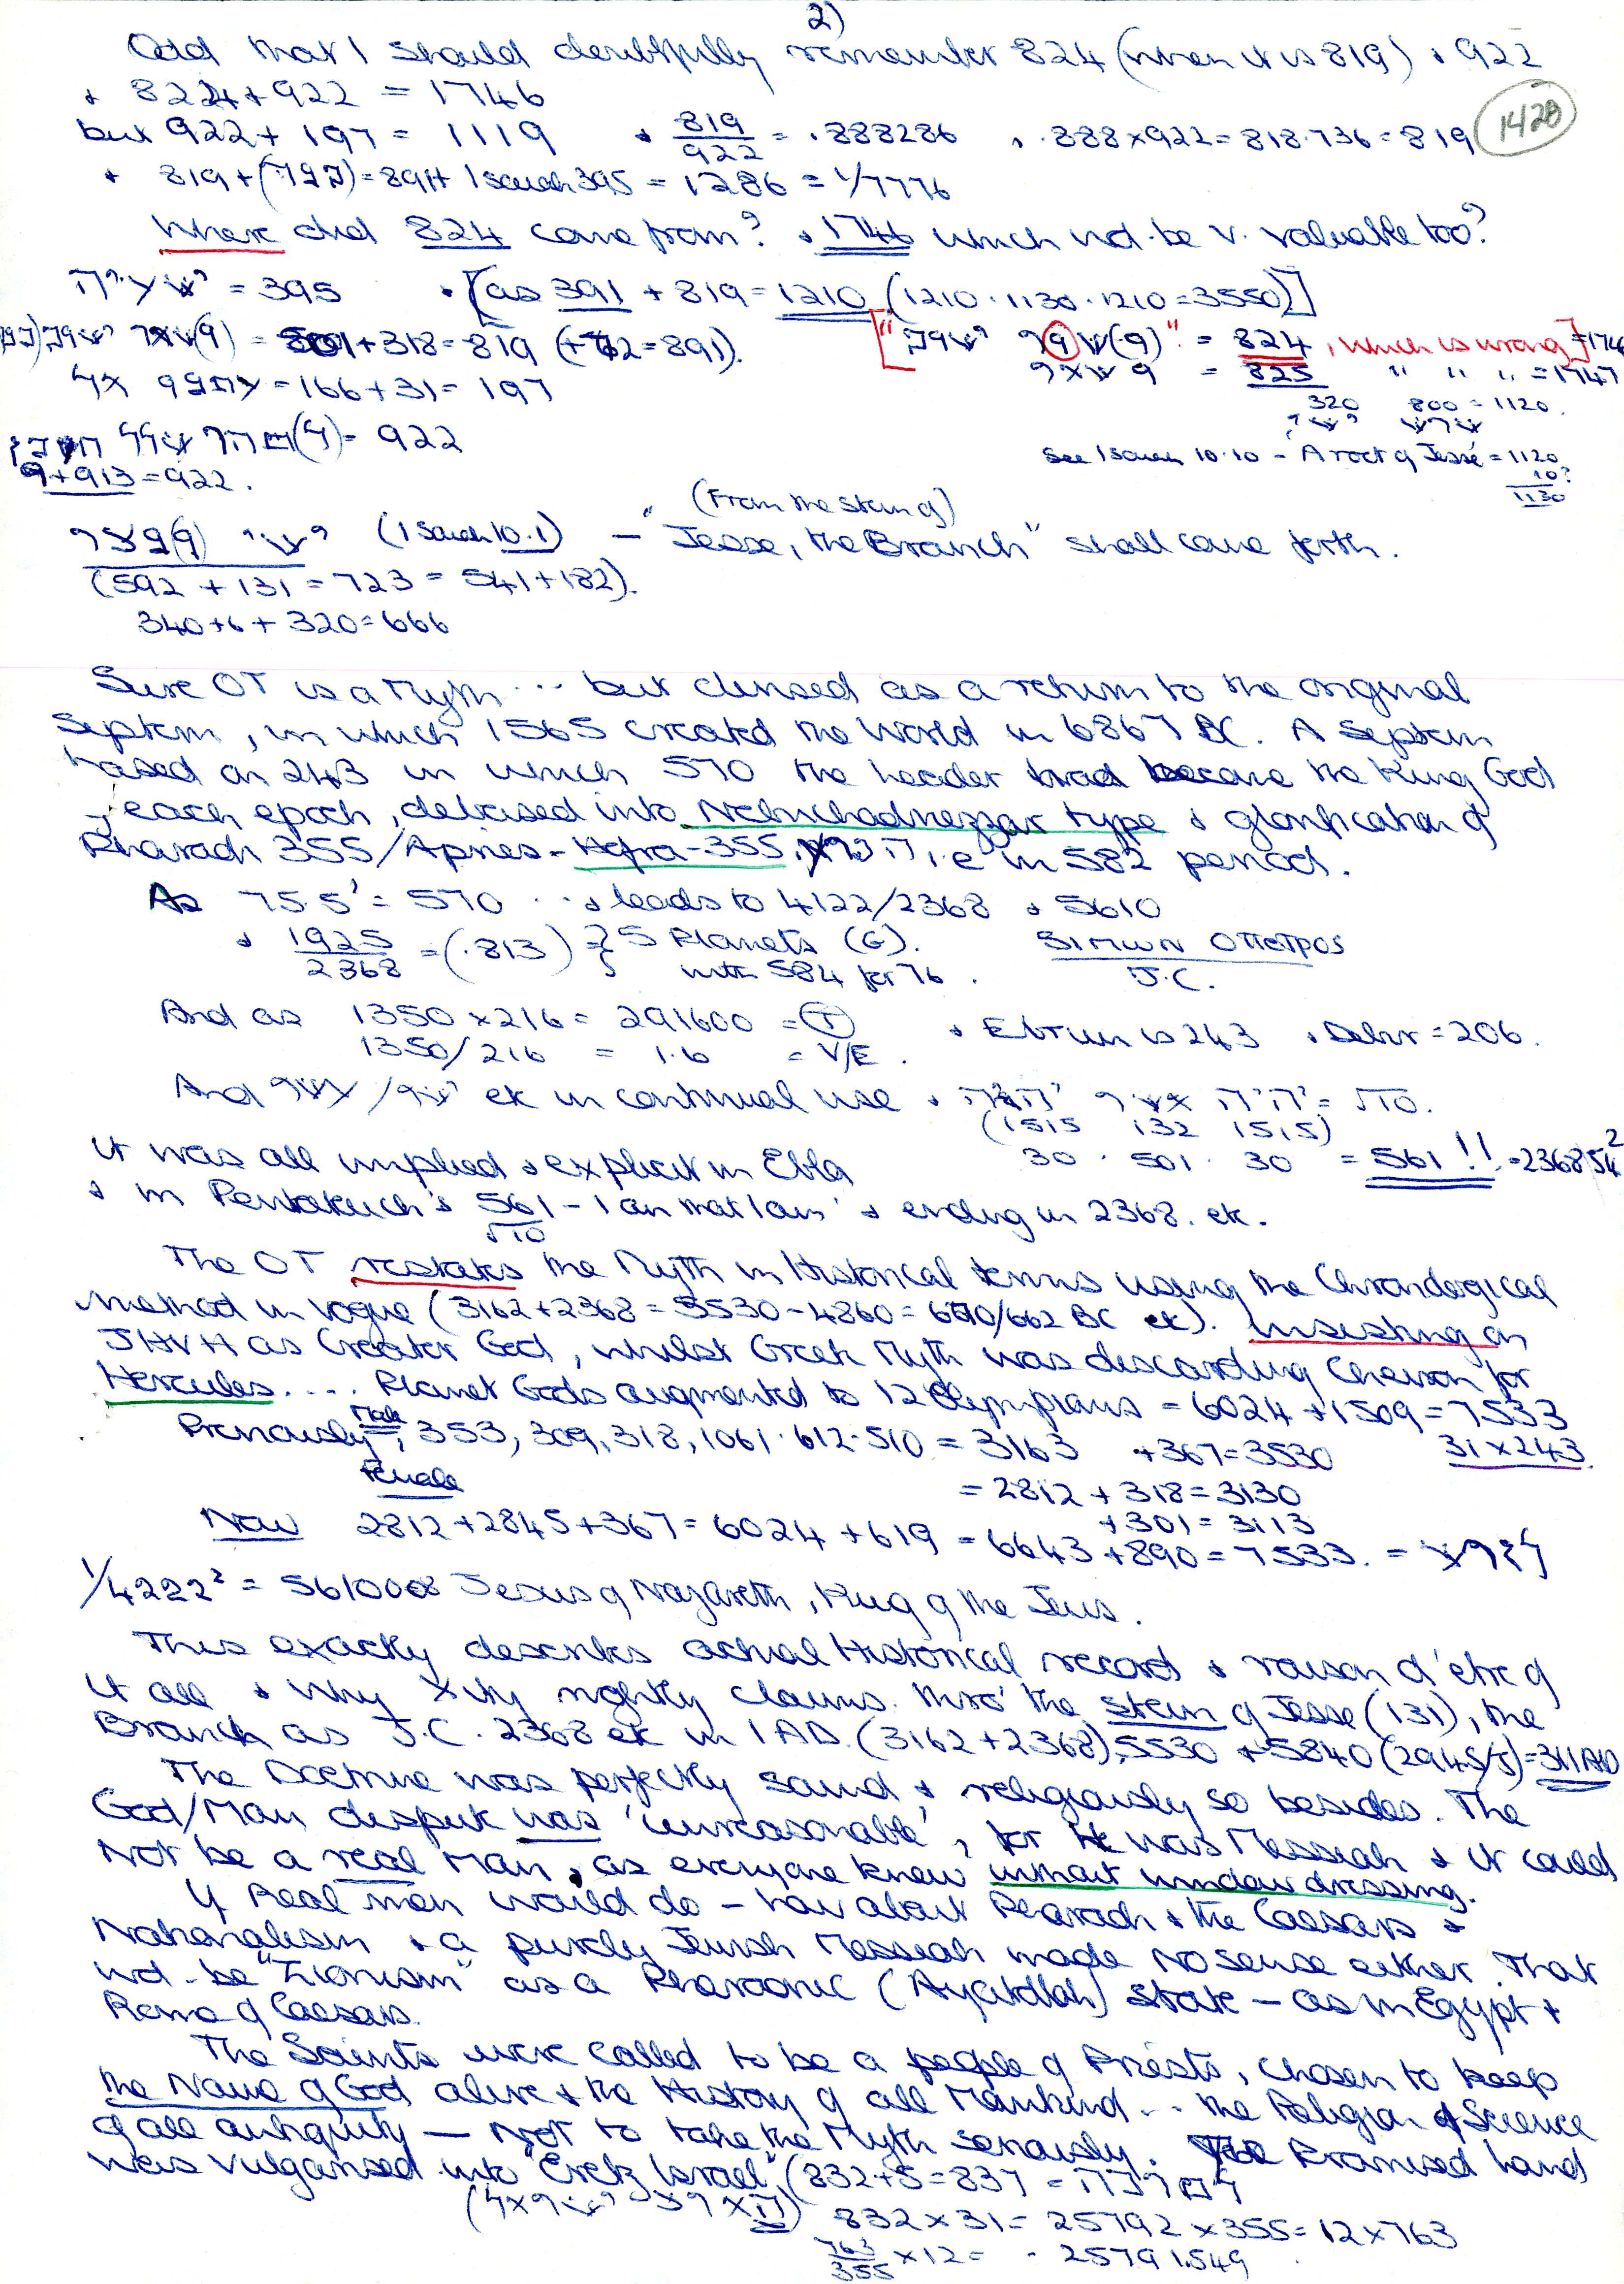 2)
Odd that I should doubtfully remember 824 (when it is 819) + 922
+ 824+922 = 1746
1428
but 922+ 197 = 1119 + 819/922 = .888286 , .888×922=818.736=819
+ 819+( )=891+ Isaiah 395 = 1286 = 1/7776
Where did 824 come from? + 1746 which wd. be v. valuable too?
= 395 [as 391 + 819=1210 (1210.1130.1210=3550)]
= 501+318=819 (+72=891). [" " = 824, which is wrong] =1746
= 825 " " " =1747
= 166+31= 197
320 800 = 1120.
= 922
See Isaiah 10.10 - 'A root of Jesse = 1120
10?
1130
9+913=922.
(From the stem of)
(Isaiah 10.1) — "Jesse, the Branch" shall come forth.
(592 + 131 = 723 = 541+182).
340+6+320=666
Sure OT is a Myth ... but devised as a return to the original
System, in which 1565 created the World in 6867 BC. A System
based on 243 in which 570 the header had become the King God
of each epoch, debased into Nebuchadnezzar type + glorification of
Pharaoh 355/Apries-Hofra-355, i.e in 582 period.
As 75.5' = 570 ... + leads to 4122/2368 + 5610
+ 1925/2368 = (.813) } 5 Planets (G). with 584 for 76. ΣΙΜΩΝ ΟΠΕΤΡΟΣ / J.C.
And as 1350 ×216= 291600 = (T) + Ebrum is 243 + Debir = 206.
1350/216 = 1.6 = V/E.
And etc in continual use + = √10.
(1515 132 1515)
It was all implied + explicit in Ebla 30 . 501 . 30 = 561!! =2368/54²
+ in Pentateuch's 561 - 'I am that I am' + ending in 2368. etc.
√10
The OT restates the Myth in Historical terms using the Chronological
Method in vogue (3162+2368=5530-4860=670/662 BC etc). Insisting on
JHVH as Creator God, whilst Greek Myth was discarding Cheiron for
Hercules.... Planet Gods augmented to 12 Olympians = 6024 +1509=7533
Previously Male, 353, 309, 318, 1061.612.510 = 3163 +367=3530 31×243
Female = 2812 + 318=3130
+301= 3113
Now 2812+2845+367= 6024 +619 = 6643+890=7533. =
1/4222² = 5610008 Jesus of Nazareth, King of the Jews.
This exactly describes actual Historical record + raison d'etre of
it all + why Xity rightly claims. thro' the stem of Jesse (131), the
Branch as J.C. 2368 etc in 1 AD. (3162+2368),5530 +5840 (2945/5)=311AD
The Doctrine was perfectly sound + religiously so besides. The
God/Man dispute was 'unreasonable', for He was Messiah + it could
Not be a real Man, as everyone knew without window dressing.
If Real men would do - how about Pharaoh + the Caesars +
Nationalism + a purely Jewish Messiah made no sense either. That
wd. be "Zionism" as a Pharaonic (Ayatollah) state - as in Egypt +
Rome of Caesars.
The Saints were called to be a people of Priests, chosen to keep
the Name of God alive + the History of all Mankind... the Religion of Science
of all antiquity — Not to take the Myth seriously. The Promised Land
was vulgarised into "Eretz Israel" (832+5=837 =
832×31= 25792 ×355= 12×763
763/355 ×12= . 25791.549